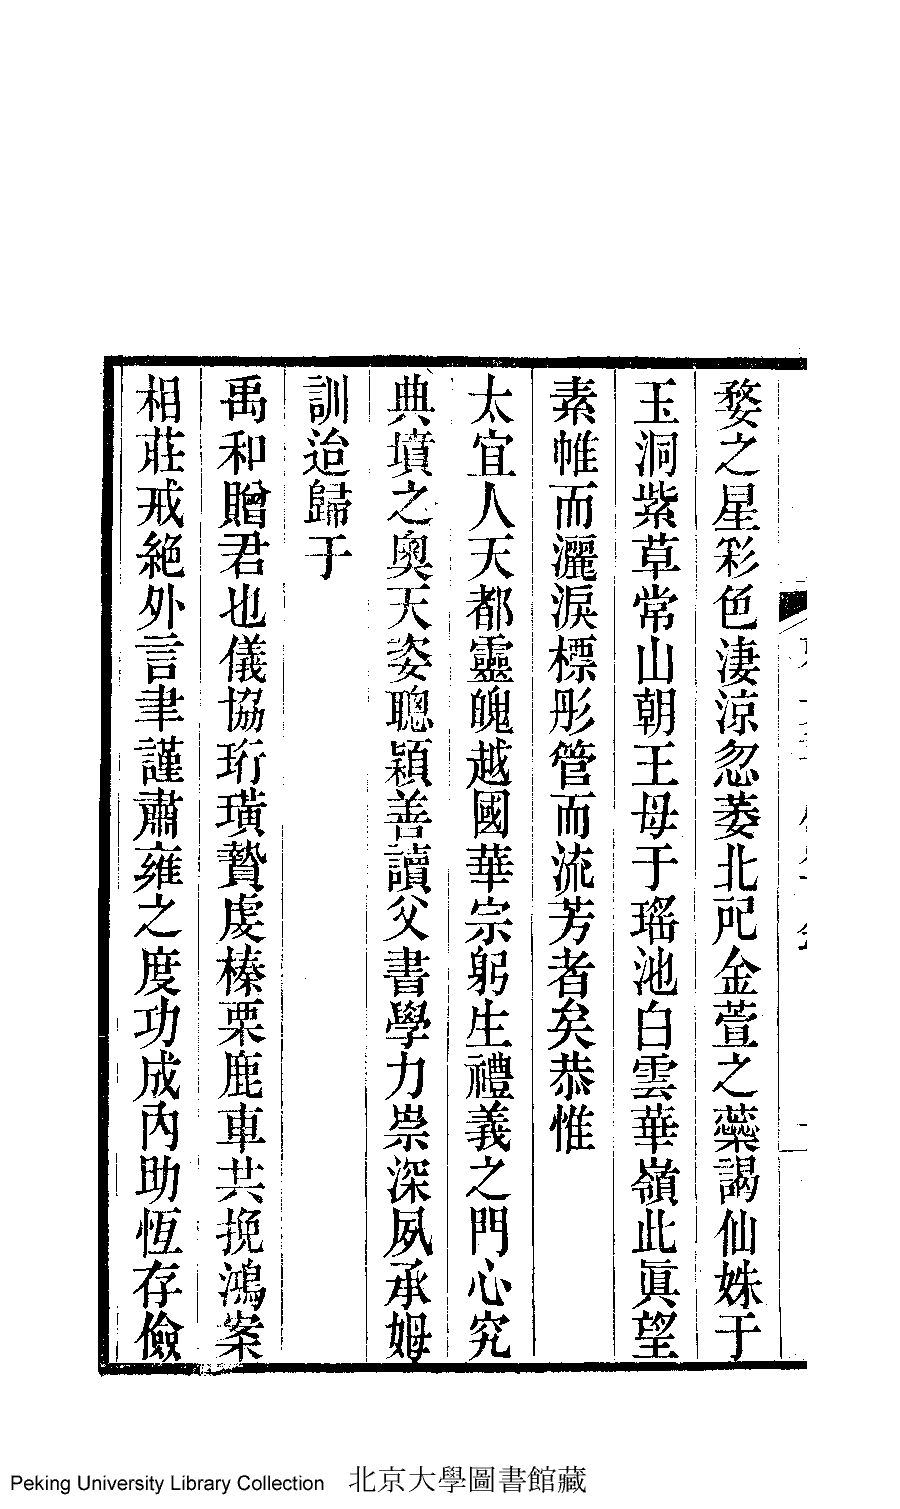 婺之星彩色淒涼忽萎北戺金萱之藥謁仙姝于
玉洞紫草常山朝王母于瑶池白雲華嶺此眞望
素帷而灑淚標彤管而流芳者矣恭惟
太宜人天都靈魄越國華宗躬生禮義之門心究
典墳之奧天姿聰穎善讀父書學力崇深夙承姆
訓迨歸于
禹和贈君也儀協珩璜贄虔榛栗鹿車共挽鴻案
相莊戒絕外言聿謹肅雍之度功成內助恆存儉
Peking University Library Collection 北京大學圖書館藏